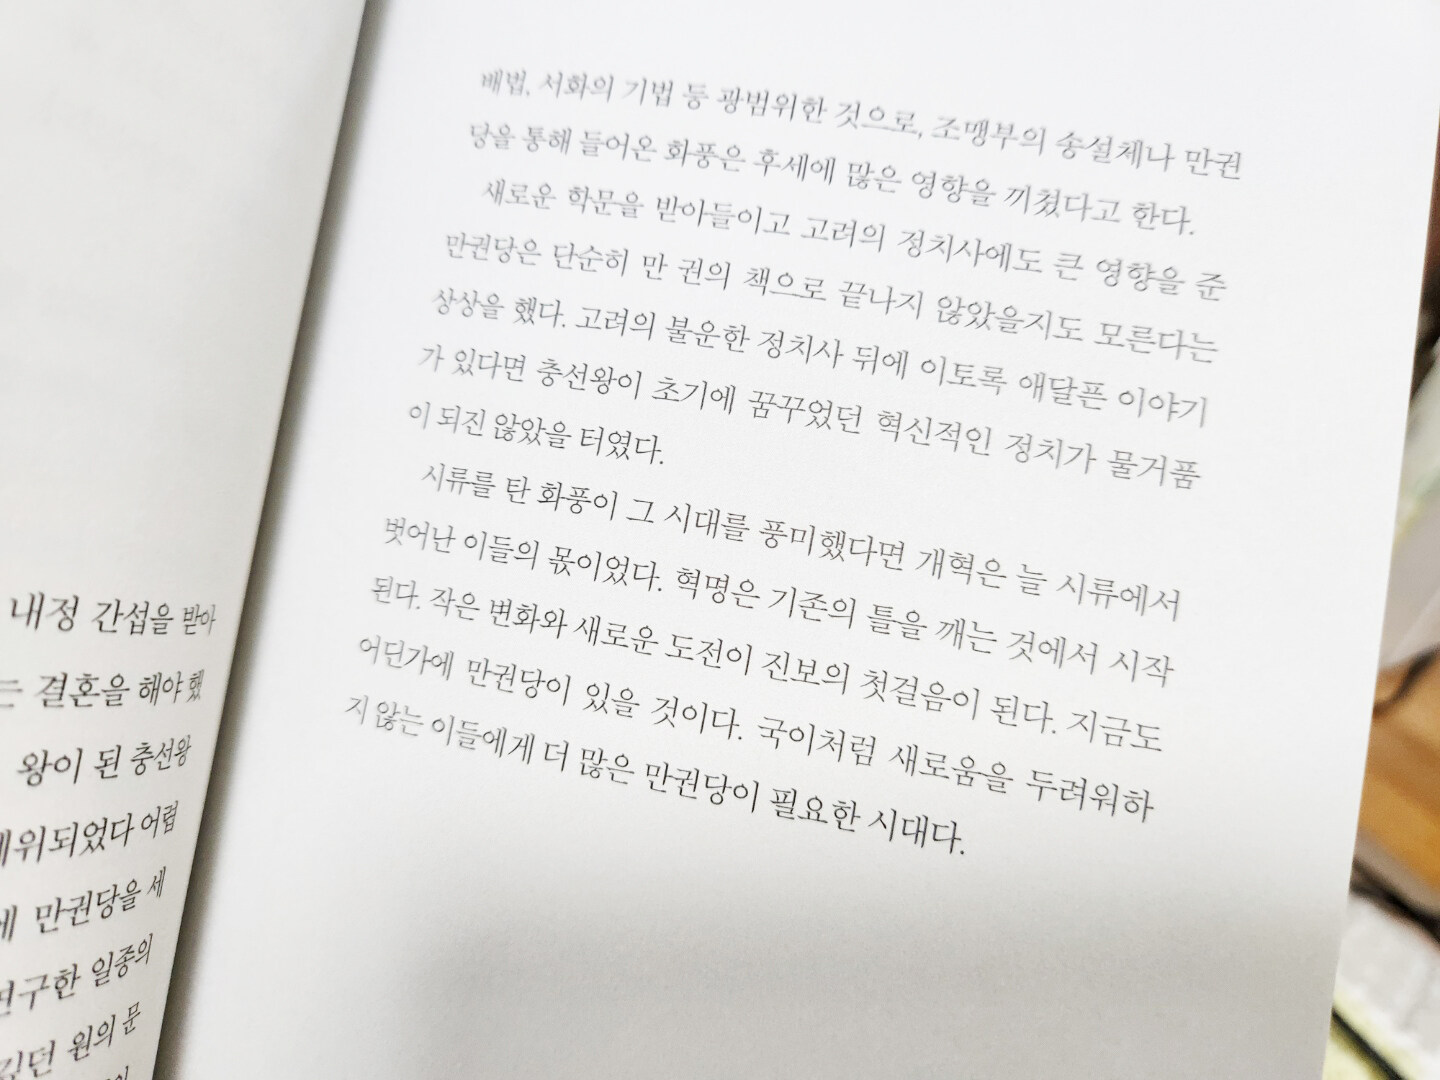 내정 간섭을 받아
는 결혼을 해야 했
왕이 된 충선왕
위되었다 어렵
만권당을 세
연구한 일종의
원의 문
배법, 서화의 기법 등 광범위한 것으로, 조맹부의 송설체나 만권
당을 통해 들어온 화풍은 후세에 많은 영향을 끼쳤다고 한다.
새로운 학문을 받아들이고 고려의 정치사에도 큰 영향을 준
만권당은 단순히 만 권의 책으로 끝나지 않았을지도 모른다는
상상을 했다. 고려의 불운한 정치사 뒤에 이토록 애달픈 이야기
가 있다면 충선왕이 초기에 꿈꾸었던 혁신적인 정치가 물거품
이 되진 않았을 터였다.
시류를 탄 화풍이 그 시대를 풍미했다면 개혁은 늘 시류에서
벗어난 이들의 몫이었다. 혁명은 기존의 틀을 깨는 것에서 시작
된다. 작은 변화와 새로운 도전이 진보의 첫걸음이 된다. 지금도
어딘가에 만권당이 있을 것이다. 국이처럼 새로움을 두려워하
지 않는 이들에게 더 많은 만권당이 필요한 시대다.